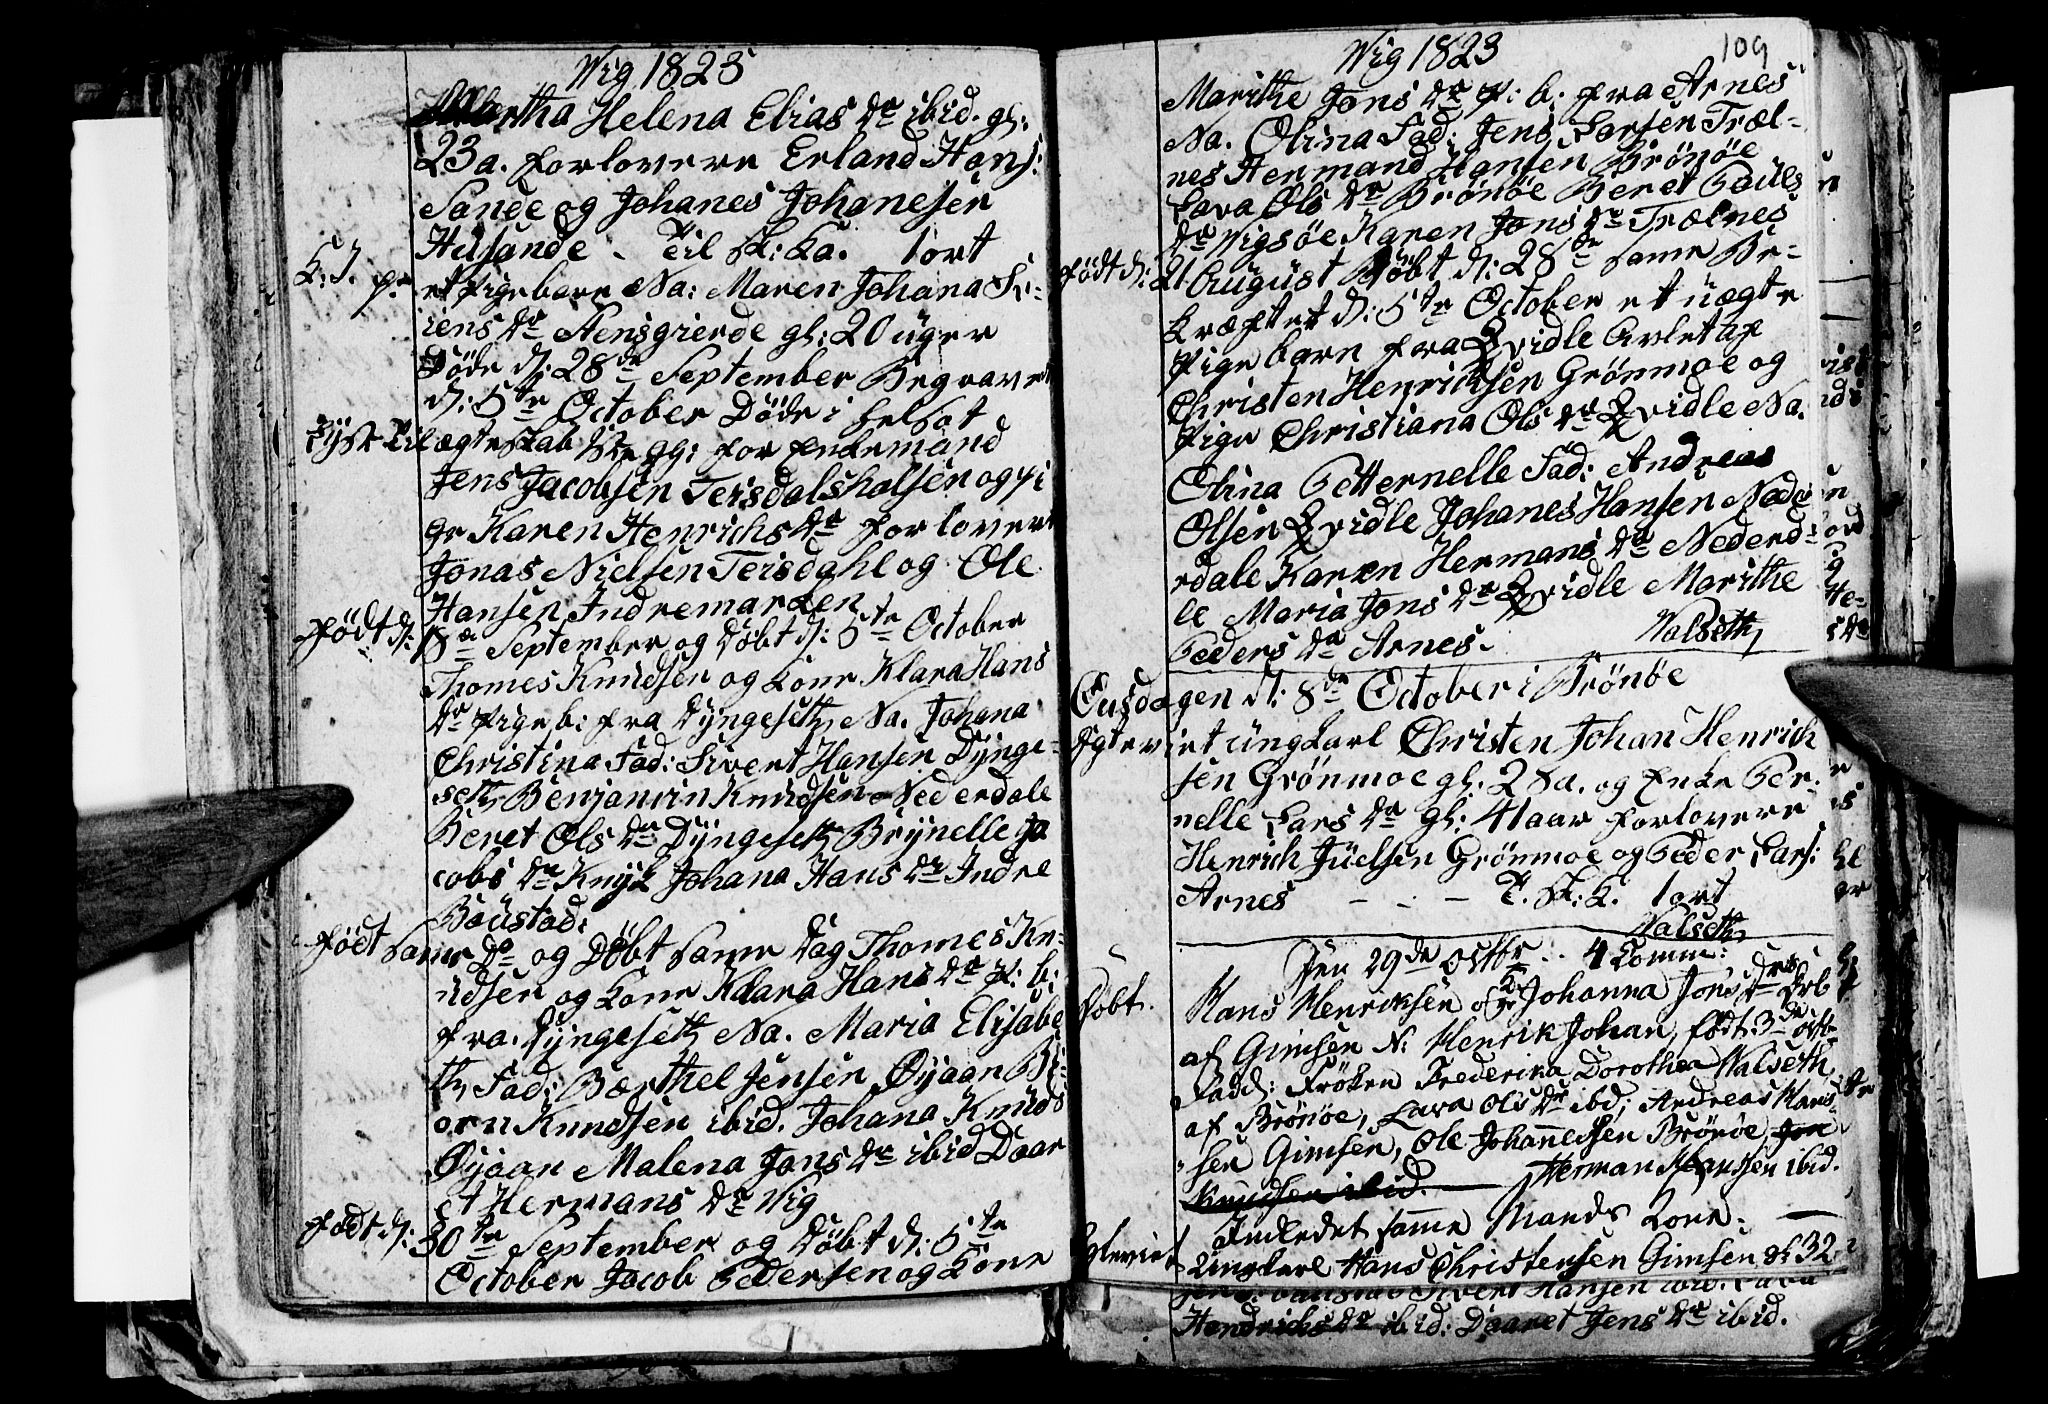 Wig 1823
Martha Helena Elias dr ibid. gl:
23 a. forlovere Erland Hans:
Sande og Johanes Johanesen
Husande. Til Sk: Ka. 1 ort
K: J. p:
et Pigebarn Na: Maren Johana Si-
iens dr Stensgierde gl: 20 uger
Døde d: 28de September Begravet
d: 5te October Døde i Helhat
Lyst til ægteskab 1ste g: for Enkemand
Jens Jacobsen Teisdalsholsen og pi
ge Karen Henrichs dr forlovere
Jonas Nielsen Teisdahl og Ole
Hansen Indremarken
født d: 18de September og døbt d: 5te October
Thomes Knudsen og kone Klara Hans
dr Pige b: fra Dyngeseth Na. Johana
Christina Fad: Sivert Hansen Dynge-
seth Benjamin Knudsen Nederdale
Beret Ols dr Dyngeseth Brynelle Ja
cobs dr Knyk Johana Hans dr Indre
Boustad:
født same do og Døbt same dag Thomes Kn-
udsen og kone Klara Hans dr p: b:
fra Dyngeseth Na. Maria Elisabe
th Fad: Bærthel Jensen Øyaan Bi-
orn Knudsen ibid. Johana Knuds
Øyaan Malena Jons dr ibid Daar
et Hermans dr Wig
født d: 30te September og døbt d: 5te
October Jacob Pedersen og kone
Wig 1823
109
Marithe Jons dr p: b: fra Arnes
Na. Olina Fad: Jens Larsen Træl-
nes Henmand Hansen Brønøe
Lava Ols dr Brønøe Beret Pouls
dr Wigsøe Karen Jons dr Trælnes
født d: 21 August Døbt d: 28de same Be-
kræftet d: 5te October et uægte
Pigebarn fra Qvidle Avlet af
Christen Henricksen Grønmoe og
Pige Christiana Ols dr Qvidle Na.
Olina Petternelle Fad: Andreas
Olsen Qvidle Johanes Hansen Nede
rdale Karen Hermans dr Nederd-
le Maria Jons dr Qvidle Marithe
Peders dr Arnes.
Walseth
Onsdagen d: 8de October i Brønøe
Egteviet ungkarl Christen Johan Henrich
sen Grønmoe gl: 28 a. og Enke Per-
nelle Lars dr gl: 41 aar forlovere
Henrich Juelsen Grønmoe og Peder Lars:
Arnes - - - T. Sk: K. 1 ort
Walseth
Den 29de Octbr: 4 Comm:
Døbt. Hans Henriksen og Johanna Jons dr
af Gimsen N: Henrik Johan, født 3de Octbr
Fadd: Frøken Frederika Dorothea Walseth
af Brønøe, Lava Ols dr ibd; Andreas Hans-
sen Gimsen, Ole Johannessen Brønøe, Jon
Knudsen ibid. — Herman Hanssen ibid.
Indledet samme Mands kone. —
Egteviet Ungkarl Hans Christensen Gimsen gl: 32
Sivert Hansen ibid. Lava
Hendrichs dr ibid: Daaret Jens dr ibid.